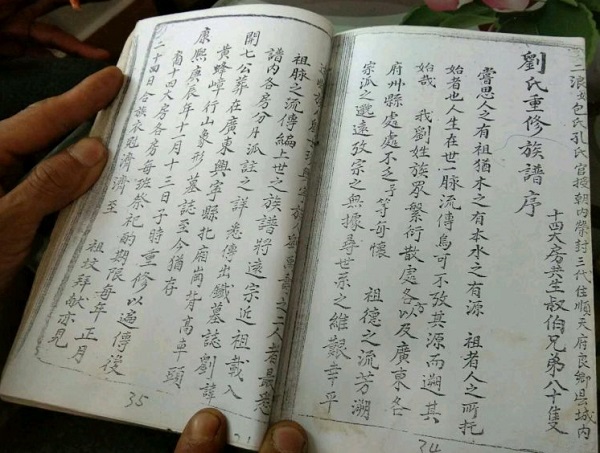 二浪九包氏孔氏官授朝内榮封三代住順天府良鄉县城内
十四大房共生叔伯兄弟八十隻
劉氏重修族譜序
嘗思人之有祖猶木之有本水之有源 祖者人之所托
始者也人生在世一脉流傳烏可不孜其源而遡其
始哉 我劉姓族眾繁衍散處各方以及廣東各
府州縣處處不乏予等每懷 祖德之流芳溯
宗派之邈遠孜宗之無據尋世系之維艱幸平
二人者最悉
祖脉之流傳編上世之族譜將遠宗近祖載入
譜内各房分爿派註之詳悉傳出钀墓誌劉諱
開七公葬在廣東興宇縣北廂崗背高車頭
黄蜂嶂行山象形墓誌至今猶存
康熙庚辰年十月十三日子時重修以遍傳後
裔十四大房各房每班祭祀酌期限每年正月
二十四日合族衣冠濟濟至 祖坟拜献亦見
34
35